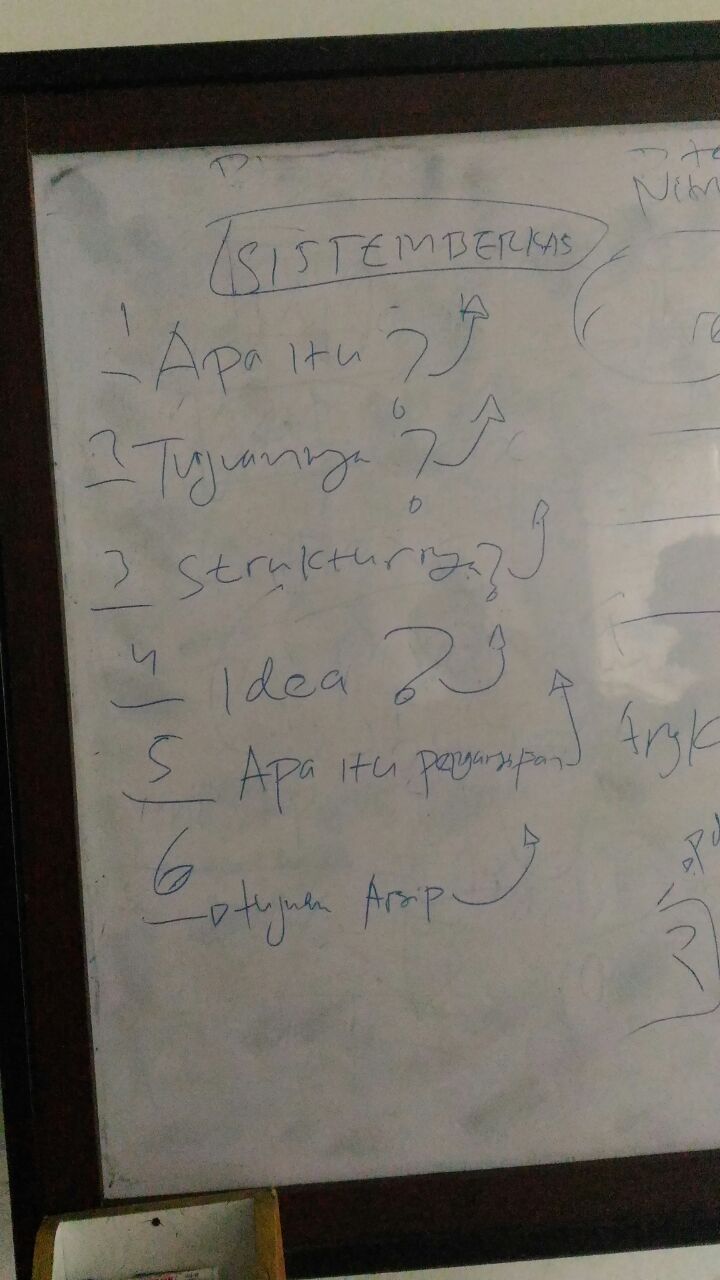 SISTEM BERKAS
1 Apa itu ?
2 Tujuannya ?
3 Strukturnya ?
4 Idea ?
5 Apa itu pengarsipan
6 tujuan Arsip